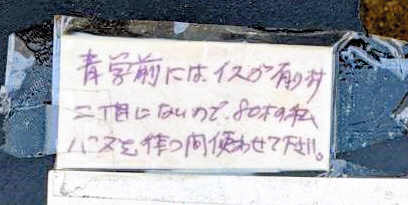 青学前には、イスが有りますが
二丁目にないので、80才の私
バスを待つ間使わせて下さい。